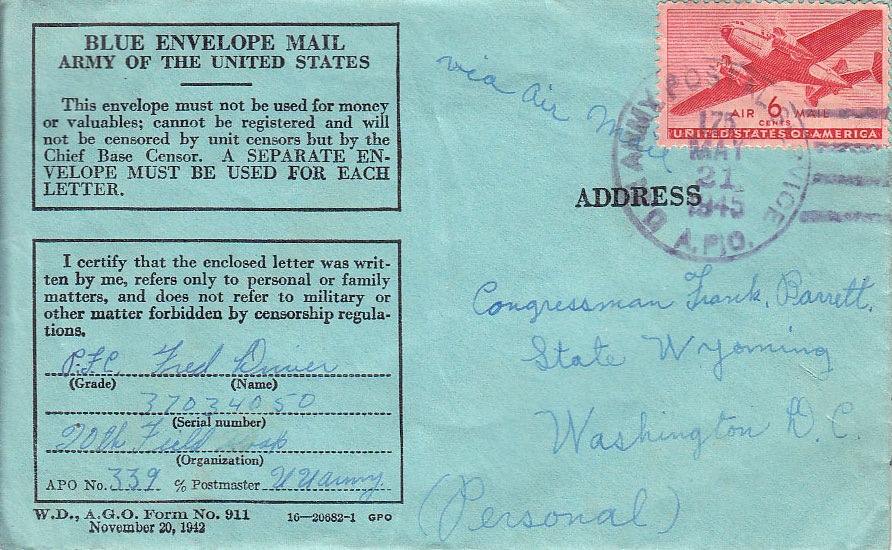 BLUE ENVELOPE MAIL
ARMY OF THE UNITED STATES
This envelope must not be used for money
or valuables; cannot be registered and will
not be censored by unit censors but by the
Chief Base Censor. A SEPARATE EN-
VELOPE MUST BE USED FOR EACH
LETTER.
via Air Mail
AIR 6 MAIL
CENTS
UNITED STATES OF AMERICA
ARMY POSTAL SERVICE
A.P.O.
MAY
21
1945
ADDRESS
I certify that the enclosed letter was writ-
ten by me, refers only to personal or family
matters, and does not refer to military or
other matter forbidden by censorship regula-
tions.
P.F.C. Fred Driver
(Grade) (Name)
37034050
(Serial number)
20th Field Hosp
(Organization)
APO No. 339 % Postmaster
W.D., A.G.O. Form No. 911
November 20, 1942
16—20682-1 GPO
Congressman Frank. Barrett.
State Wyoming
Washington D.C.
(Personal)